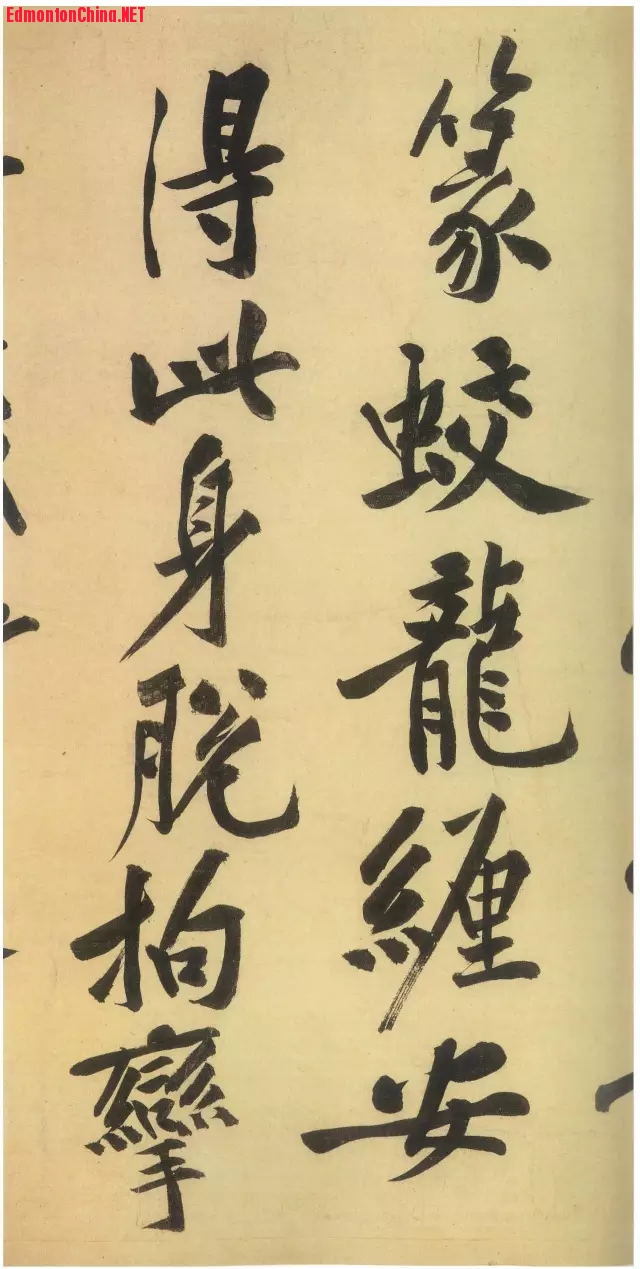 EdmontonChina.NET
篆蛟龍纏安
得此身脫拘攣